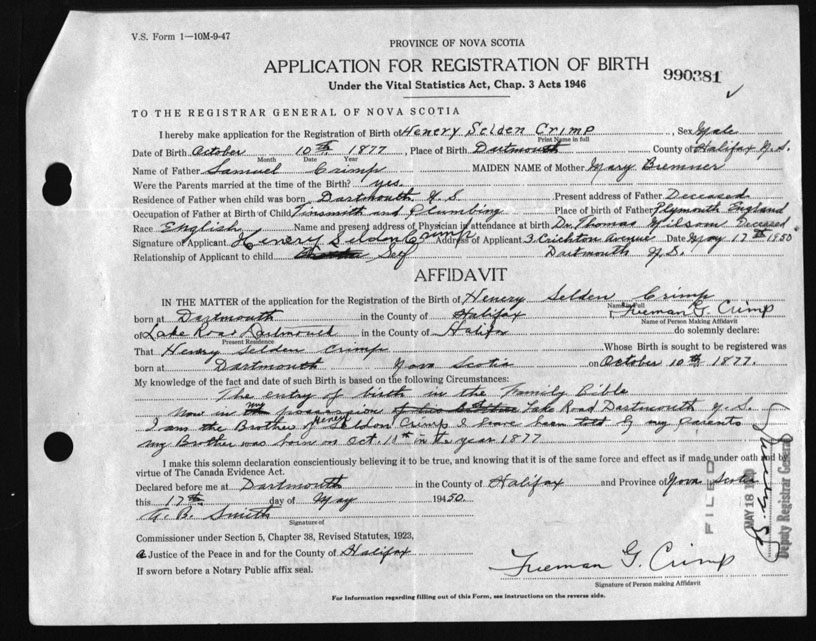 V.S. Form 1—10M-9-47
PROVINCE OF NOVA SCOTIA
APPLICATION FOR REGISTRATION OF BIRTH
990381
Under the Vital Statistics Act, Chap. 3 Acts 1946
TO THE REGISTRAR GENERAL OF NOVA SCOTIA
I hereby make application for the Registration of Birth of Henery Selden Crimp, Sex Male
Print Name in full
Date of Birth October 10th 1877, Place of Birth Dartmouth County of Halifax N.S.
Month Date Year
Name of Father Samuel Crimp MAIDEN NAME of Mother Mary Bremner
Were the Parents married at the time of the Birth? yes.
Residence of Father when child was born Dartmouth N.S. Present address of Father Deceased
Occupation of Father at Birth of Child Tinsmith and Plumbing Place of birth of Father Plymouth England
Race English Name and present address of Physician in attendance at birth Dr. Thomas Wilson Deceased
Signature of Applicant Henery Seldon Crimp Address of Applicant 3 Crichton Avenue Date May 17th 1950
Relationship of Applicant to child Self Dartmouth N.S.
AFFIDAVIT
IN THE MATTER of the application for the Registration of the Birth of Henery Selden Crimp
Name in Full
born at Dartmouth in the County of Halifax I, Freeman G. Crimp
Name of Person Making Affidavit
of Lake Road Dartmouth in the County of Halifax do solemnly declare:
Present Residence
That Henery Selden Crimp Whose Birth is sought to be registered was
born at Dartmouth Nova Scotia on October 10th 1877.
My knowledge of the fact and date of such Birth is based on the following Circumstances:
The entry of birth in the Family Bible
Now in my possession Lake Road Dartmouth N.S.
I am the Brother of Henery Seldon Crimp I have been told by my Parents
my Brother was born on Oct. 10th in the year 1877
I make this solemn declaration conscientiously believing it to be true, and knowing that it is of the same force and effect as if made under oath and by
virtue of The Canada Evidence Act.
Declared before me at Dartmouth in the County of Halifax and Province of Nova Scotia
this 17th day of May 1950.
A. B. Smith
Signature of
Commissioner under Section 5, Chapter 38, Revised Statutes, 1923,
a Justice of the Peace in and for the County of Halifax
If sworn before a Notary Public affix seal.
Freeman G. Crimp
Signature of Person making Affidavit
For Information regarding filling out of this Form, see instructions on the reverse side.
FILED
MAY 18 1950
Deputy Registrar General